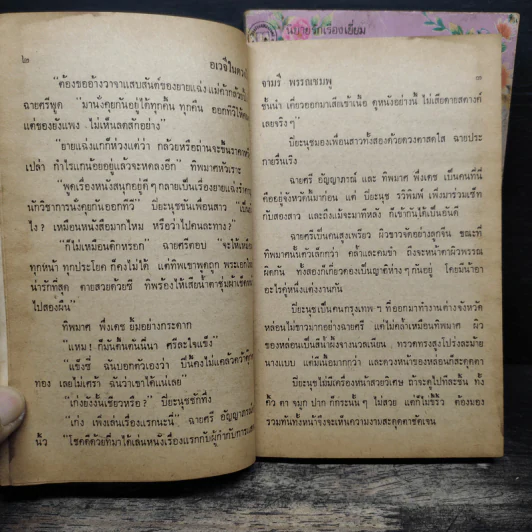 นิยายรักเรื่องเยี่ยม
๒
อเวจีในดวง
"ต้องขออ้างวาจาแสบสันต์ของยายแฉ่ง แม่ค้ากล้วยปิ้ง
ฉายศรีพูด "มานั่งคุยกันอยู่ได้ทุกคืน ทุกคืน ออกทีวีให้คน
แต่ของยังแพง ไม่เห็นลดสักอย่าง"
"ยายแฉ่งแกก็ห่วงแต่ว่า กล้วยหรือถ่านจะขึ้นราคา
เปล่า กำไรแกน้อยอยู่แล้วจะหดลงอีก" ทิพมาศหัวเราะ
"พูดเรื่องหนังสนุกอยู่ดี ๆ กลายเป็นเรื่องยายแฉ่ง
นักวิชาการนั่งคุยกันออกทีวี" ปิยะนุชขันเพื่อนสาว "เป็น
ไง? เหมือนหนังสือมากไหม หรือว่าไปคนละทาง?"
"ก็ไม่เหมือนดิกหรอก" ฉายศรีตอบ "จะให้เหมือน
ทุกหน้า ทุกประโยค ก็คงไม่ได้ แต่ทิพเขาพูดถูก พระเอก
น่ารักที่สุด ตายสวยด้วยซี ทิพร้องไห้เสียน้ำตาชุ่มผ้าเช็ดหน้า
ไปสองผืน"
ทิพมาศ พึ่งเดช ยิ้มอย่างกระดาก
"แหม! ก็มันตื้นตันนี่นา ศรีละใจแข็ง"
"แข็งซี ฉันบอกตัวเองว่า
ทอง เลยไม่เศร้า ฉันว่าเขาได้แน่เลย"
"เก่งยังงั้นเชียวหรือ?" ปิยะนุชซักทึ่ง
"เก่ง เพิ่งเล่นเรื่องแรกนะนี่" ฉายศรี อัญญาภรณ์
นิ้ว "โชคดีด้วยที่มาได้เล่นหนังเรื่องแรกกับผู้กำกับการแสดง
จามรี พรรณชมพู
๓
ชั้นนำ เคี่ยวออกมาเสียเข้าเนื้อ ดูหนังอย่างนี้ ไม่เสียดายสตางค์
เลยจริง ๆ"
ปิยะนุชมองเพื่อนสาวทั้งสองด้วยดวงตาสดใส ฉายประ
กายรื่นเริง
ฉายศรี อัญญาภรณ์ และ ทิพมาศ พึ่งเดช เป็นคนที่นี่
คืออยู่จังหวัดนี้มาก่อน แต่ ปิยะนุช รวีพิมพ์ เพิ่งมาร่วมเช็ท
กับสองสาว และถึงแม้จะมาทีหลัง ก็เข้ากันได้เป็นอันดี
ฉายศรีเป็นคนสูงเพรียว ผิวขาวจัดอย่างลูกจีน ขณะที่
ทิพมาศนั้นตัวเล็กกว่า คล้ำและคมขำ ถึงจะหน้าตาผิวพรรณ
ผิดกัน ทั้งสองก็เกี่ยวดองเป็นญาติห่าง ๆ กันอยู่ โดยมีน้าอา
อะไรคู่หนึ่งแต่งงานกัน
ปิยะนุชเป็นคนกรุงเทพ ๆ ที่ออกมาทำงานต่างจังหวัด
หล่อนไม่ขาวมากอย่างฉายศรี แต่ไม่คล้ำเหมือนทิพมาศ ผิว
ของหล่อนเป็นสีน้ำผึ้งจางนวลเนียน ทรวดทรงสูงโปร่งละม้าย
นางแบบ แต่มีเนื้อมากกว่า และดวงหน้าของหล่อนก็สะดุดตา
ปิยะนุชไม่มีเครื่องหน้าสวยวิเศษ ถ้าจะดูไปทีละชิ้น ทั้ง
คิ้ว ตา จมูก ปาก ก็กระนั้น ๆ ไม่สวย แต่ก็ไม่ขี้ริ้ว ต้องมอง
รวมกันทั้งหน้าจึงจะเห็นความงามสะดุดตาชัดเจน